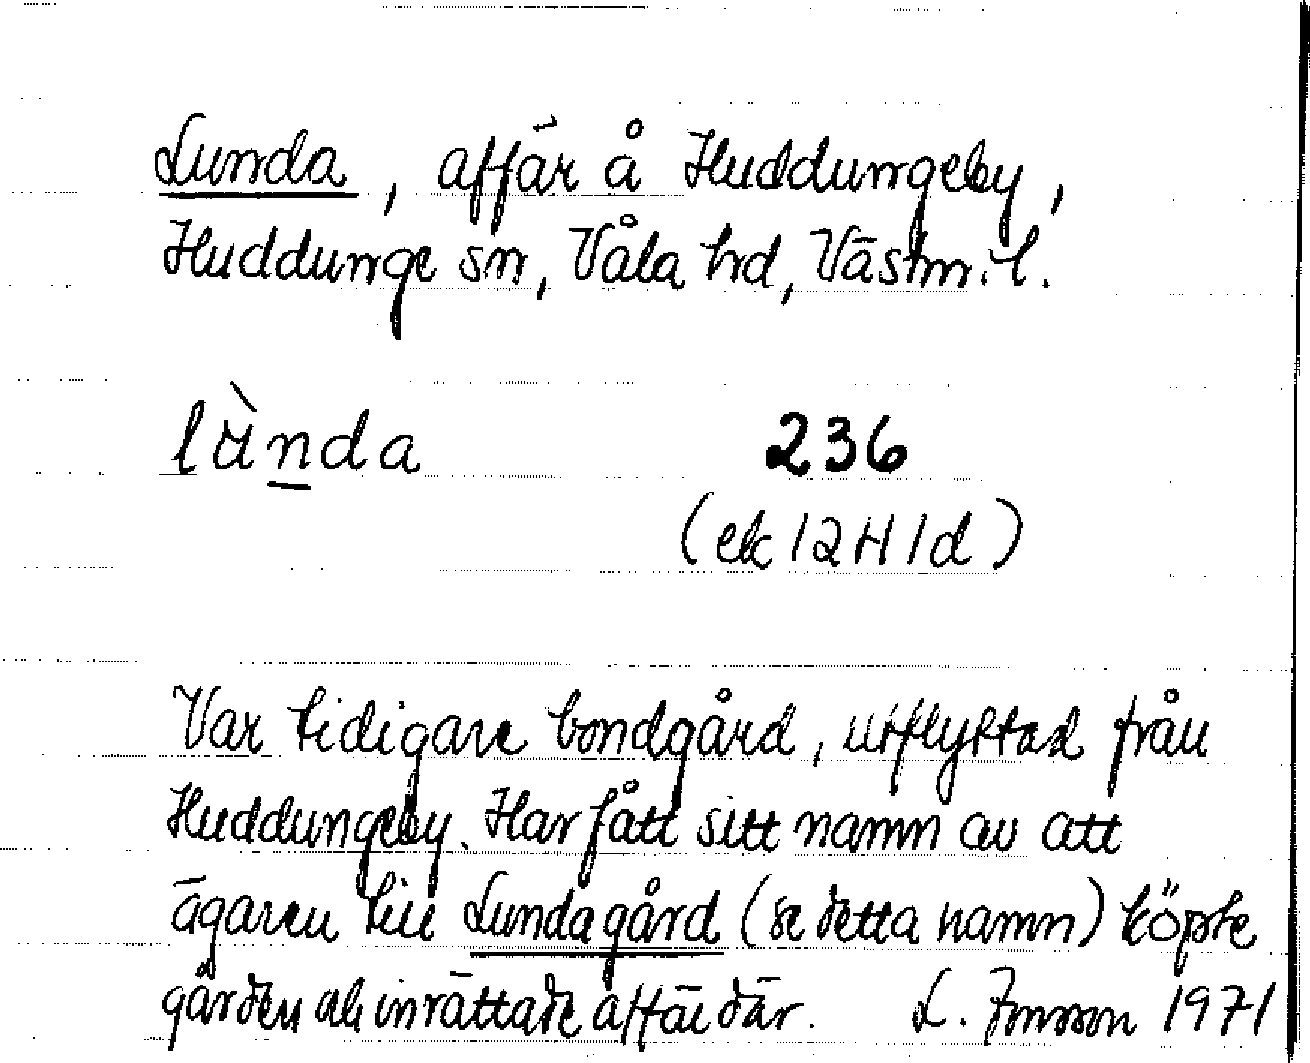 Lunda, affär å Huddungeby,
Huddunge sn, Våla hd, Västm. l.
lùnda 236
(ek 12H1d)
Var tidigare bondgård, utflyttad från
Huddungeby. Har fått sitt namn av att
ägaren till Lundagård (se detta namn) köpte
gården och inrättade affär där. L. Jonsson 1971